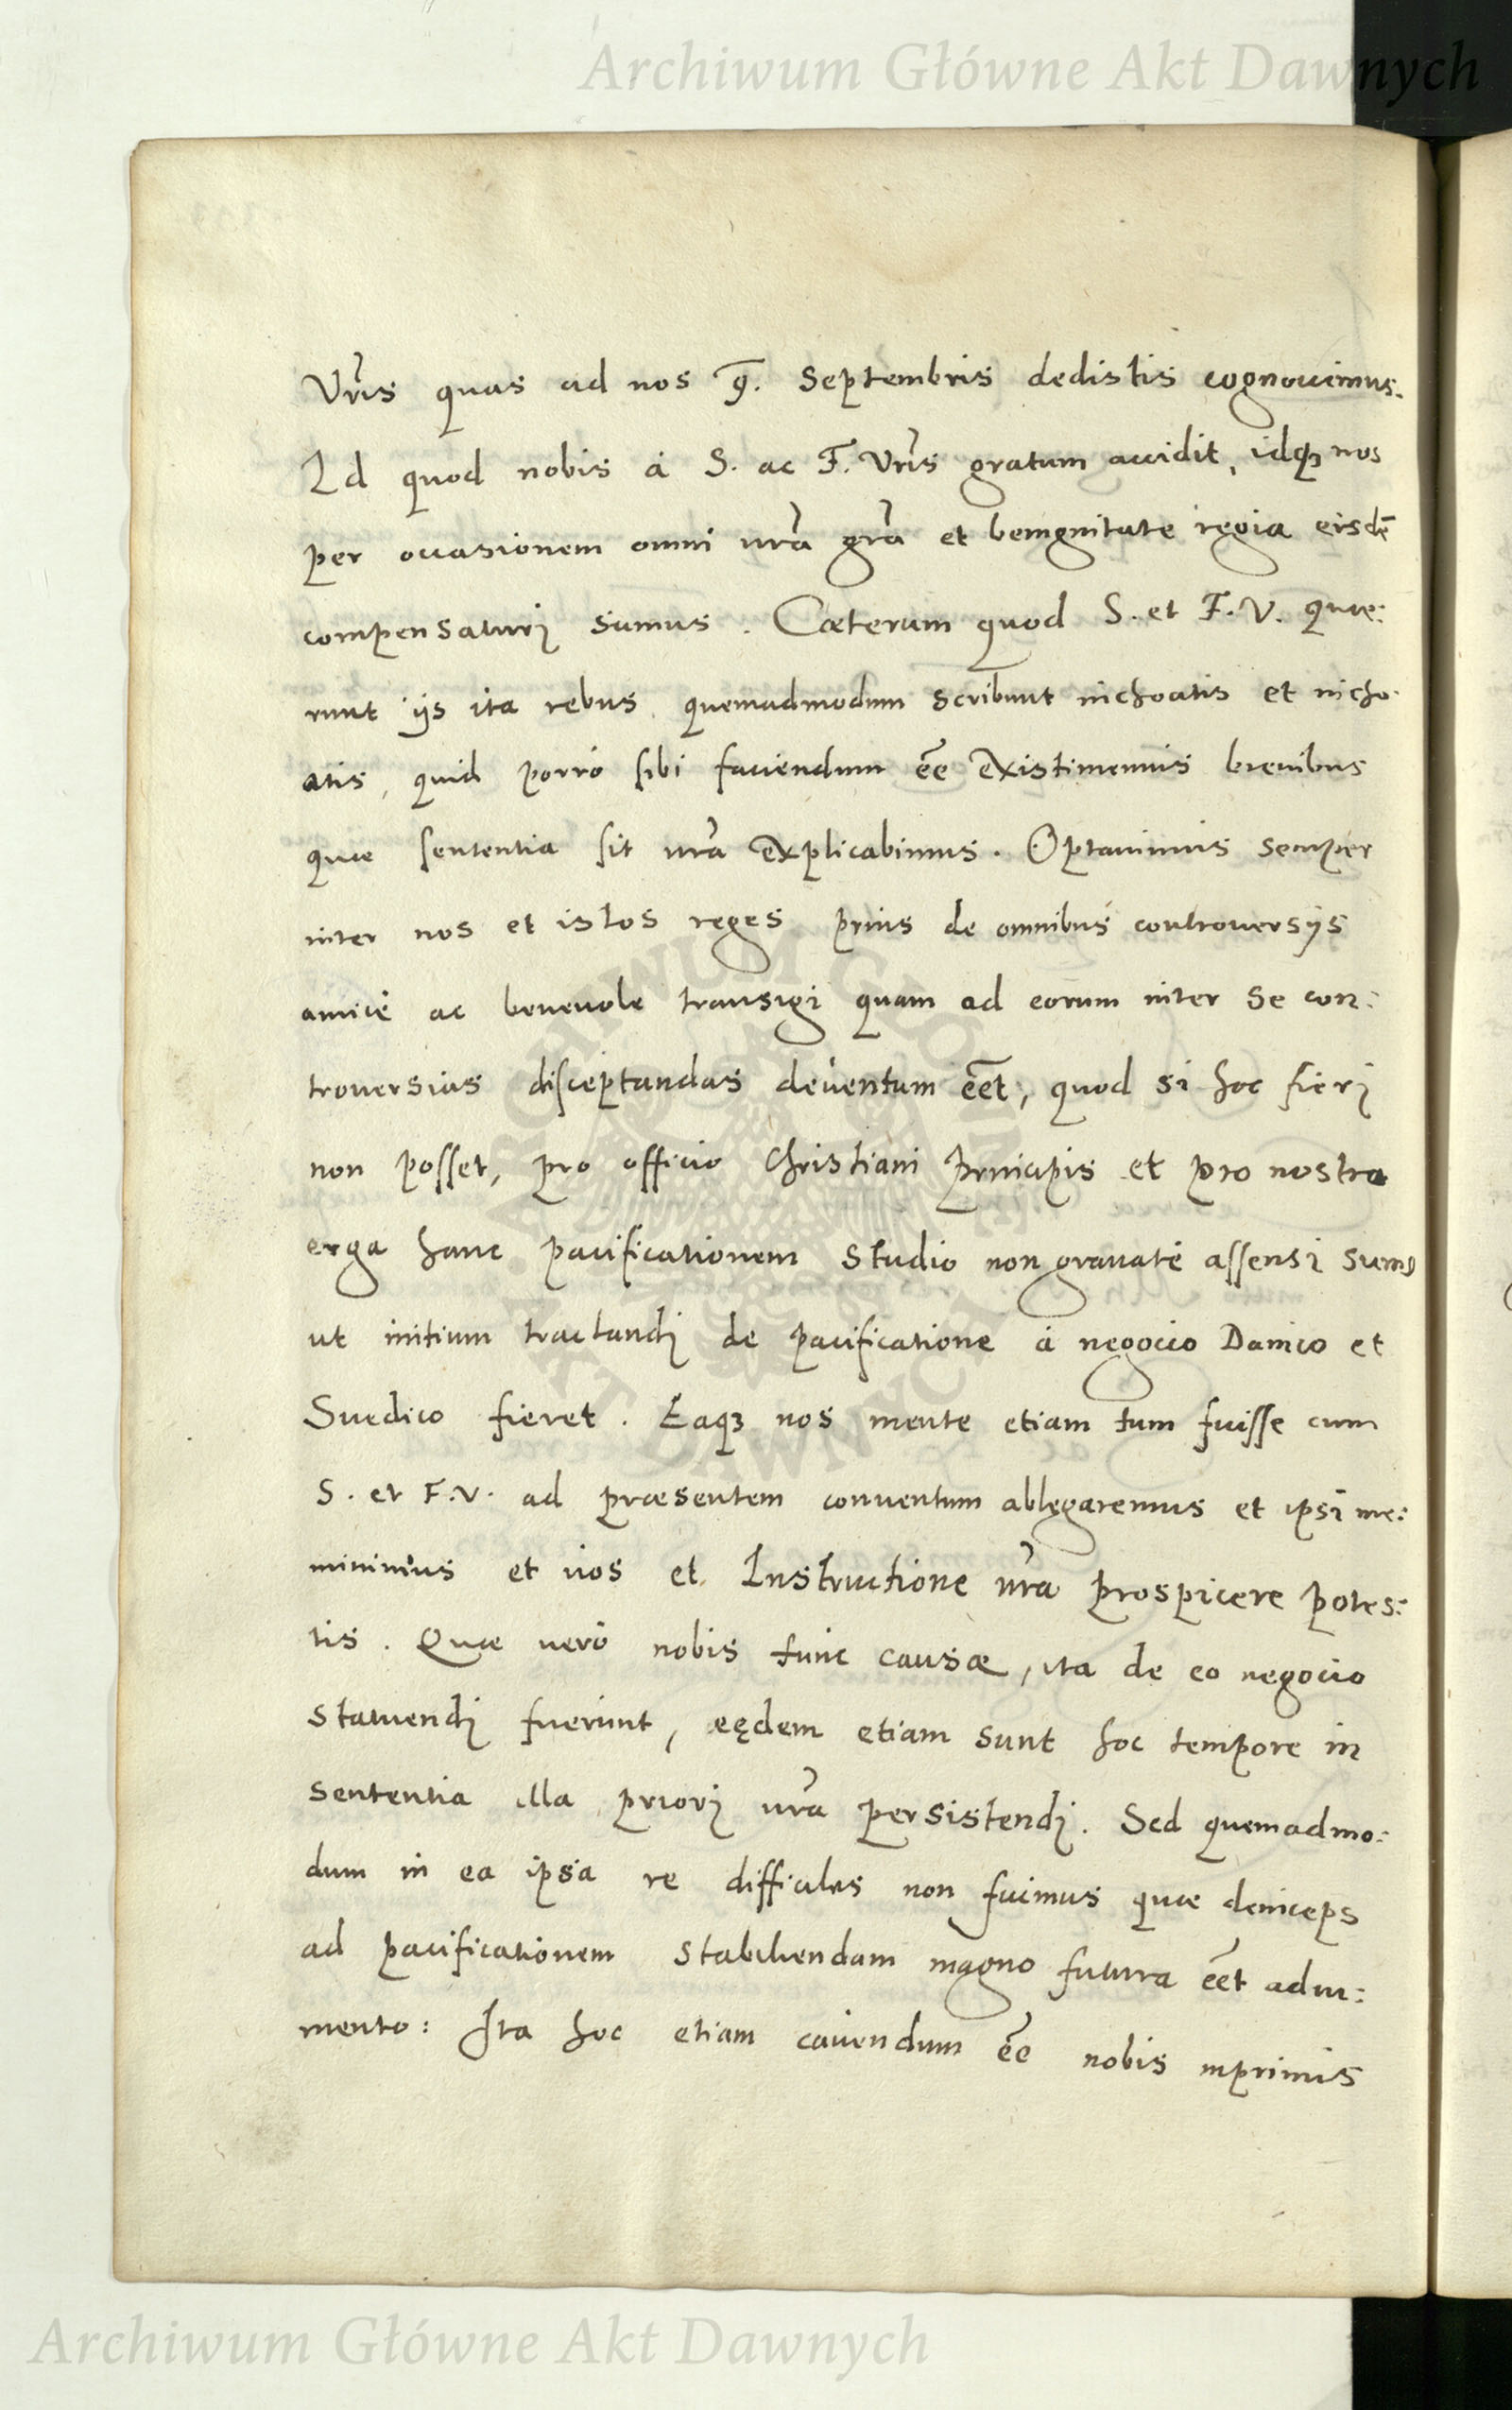 Archiwum Główne Akt Dawnych
Vr̃is quas ad nos 9. Septembris dedistis cognouimus.
Id quod nobis á S. ac F. Vr̃is gratum accidit, idqꝫ nos
per occasionem omni nr̃a gr̃a et benignitate regia eisdẽ
compensaturj sumus. Cæterum quod S. et F. V. quæ:
runt ijs ita rebus quemadmodum scribunt inchoatis et incho
atis, quid porró sibi faciendum eẽ existimemus breuibus
quæ sententia sit nr̃a explicabimus. Optauimus semper
inter nos et istos reges prius de omnibus controuersijs
amicé ac beneuole transigi quam ad eorum inter se con:
trouersias disceptandas deuentum eẽt, quod si hoc fierj
non posset, pro officio Christiani Principis et pro nostra
erga hanc pacificationem studio non grauaté assensi sumꝰ
ut initium tractandj de pacificatione á negocio Danico et
Suedico fieret. Eaqꝫ nos mente etiam tum fuisse cum
S. et F. V. ad præsentem conuentum ablegaremus et ipsi me:
minimus et uos et Instructione nr̃a prospicere potes:
tis. Quæ veró nobis tunc causæ, ita de eo negocio
statuendj fuerunt, eędem etiam sunt hoc tempore in
sententia illa priorj nr̃a persistendj. Sed quemadmo:
dum in ea ipsa re difficiles non fuimus quæ deinceps
ad pacificationem stabiliendam magno futura eẽt adiu:
mento: Ita hoc etiam cauendum eẽ nobis inprimis
ARCHIWUM GŁÓWNE AKT DAWNYCH
Archiwum Główne Akt Dawnych